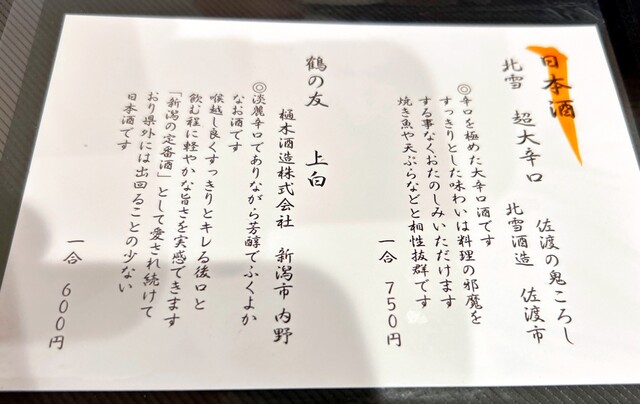 日本酒
北雪　超大辛口　佐渡の鬼ころし
北雪酒造　佐渡市
◎辛口を極めた大辛口酒です
すっきりとした味わいは料理の邪魔を
する事なくおたのしみいただけます
焼き魚や天ぷらなどと相性抜群です
一合　750円
鶴の友　上白
樋木酒造株式会社　新潟市 内野
◎淡麗辛口でありながら芳醇でふくよか
なお酒です
喉越し良くすっきりとキレる後口と
飲む程に軽やかな旨さを実感できます
「新潟の定番酒」として愛され続けて
おり県外には出回ることの少ない
日本酒です
一合　600円